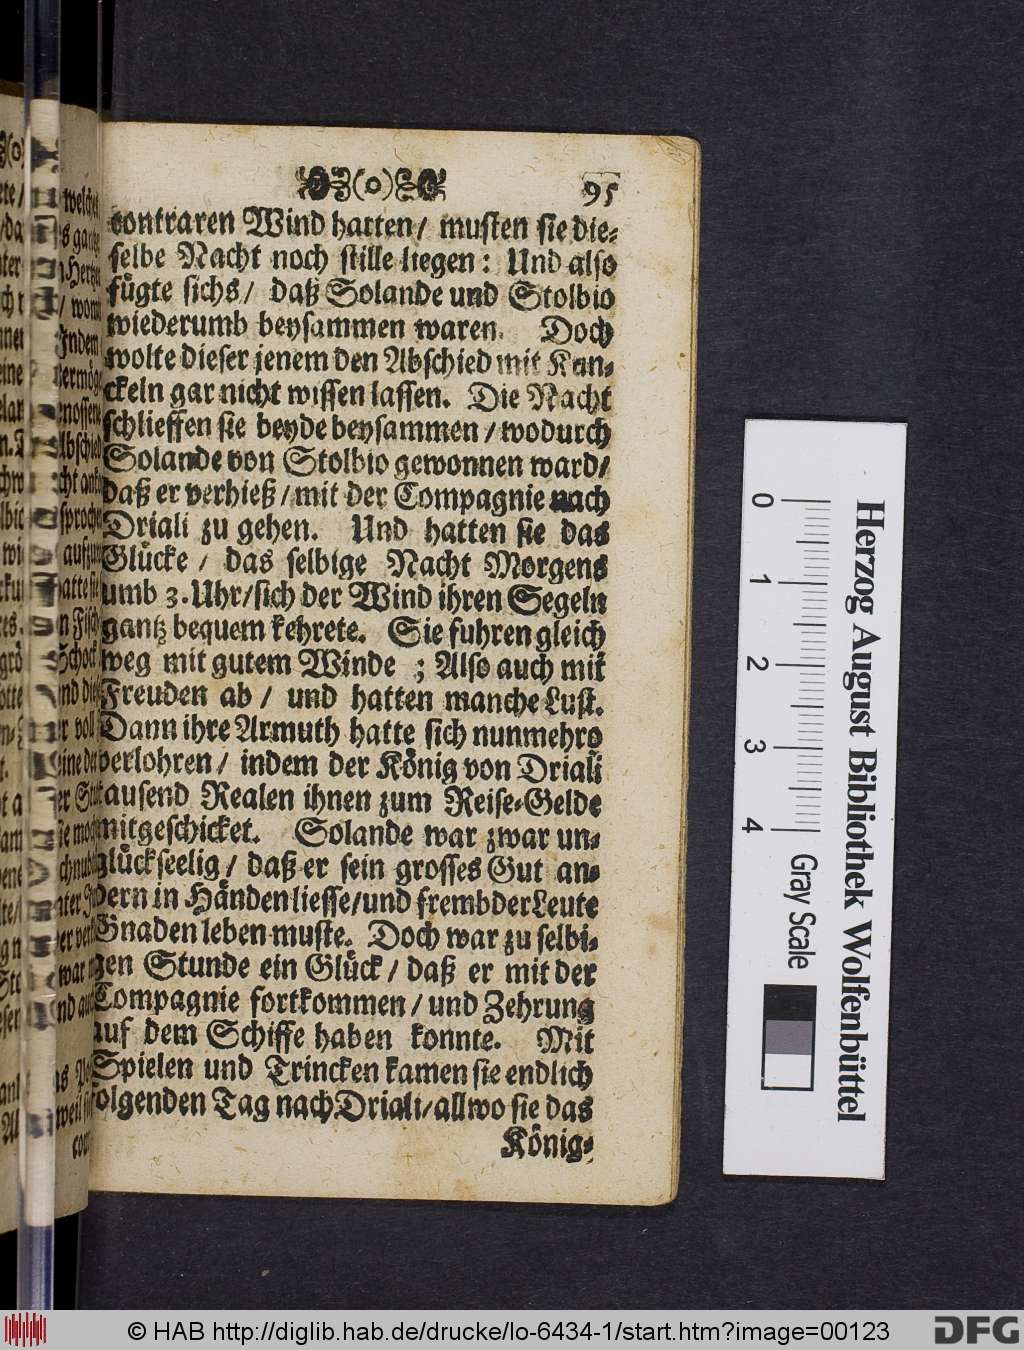 (o) 95
contraren Wind hatten / musten sie die-
selbe Nacht noch stille liegen: Und also
fügte sichs / daß Solande und Stolbio
wiederumb beysammen waren. Doch
wolte dieser jenem den Abschied mit Kun-
ckeln gar nicht wissen lassen. Die Nacht
schlieffen sie beyde beysammen / wodurch
Solande von Stolbio gewonnen ward /
daß er verhieß / mit der Compagnie nach
Driali zu gehen. Und hatten sie das
Glücke / das selbige Nacht Morgens
umb 3. Uhr / sich der Wind ihren Segeln
gantz bequem kehrete. Sie fuhren gleich
weg mit gutem Winde ; Also auch mit
Freuden ab / und hatten manche Lust.
Dann ihre Armuth hatte sich nunmehro
verlohren / indem der König von Driali
tausend Realen ihnen zum Reise-Gelde
mitgeschicket. Solande war zwar un-
glückseelig / daß er sein grosses Gut an-
dern in Händen liesse / und frembder Leute
Gnaden leben muste. Doch war zu selbi-
gen Stunde ein Glück / daß er mit der
Compagnie fortkommen / und Zehrung
auf dem Schiffe haben konnte. Mit
Spielen und Trincken kamen sie endlich
folgenden Tag nach Driali / allwo sie das
König-
0 1 2 3 4
Gray Scale
Herzog August Bibliothek Wolfenbüttel
© HAB http://diglib.hab.de/drucke/lo-6434-1/start.htm?image=00123
DFG